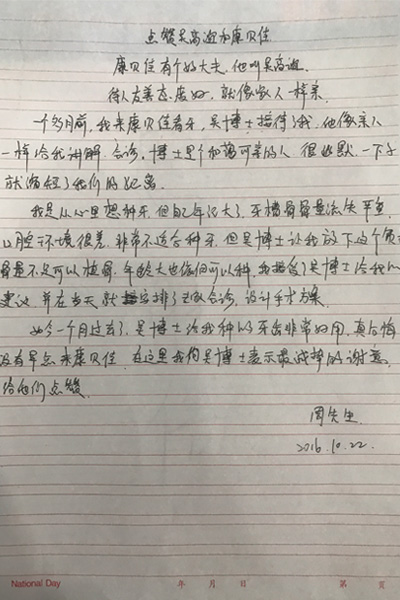 点赞吴高逊和康贝佳
康贝佳有个好大夫，他叫吴高逊。
待人友善态度好，就像家人一样亲
一个多月前，我来康贝佳看牙，吴博士接待了我，他像亲人
一样给我讲解会诊，博士是个和蔼可亲的人 很幽默，一下子
就缩短了我们的距离
我是从心里想种牙，但自己年纪大了，牙槽骨骨量流失严重，
口腔环境很差，非常不适合种牙，但吴博士让我放下这个负
骨量不足可以植骨，年龄大也依旧可以种，我接受了吴博士给我的
建议 并在当天就安排了三级会诊 设计手术方案
如今一个月过去了，吴博士给我种的牙齿非常好用，真后悔
没有早点来康贝佳，在这里我向吴博士表示最诚挚的谢意，
给他们点赞
周先生
2016.10.22
National Day 年 月 日 第 页